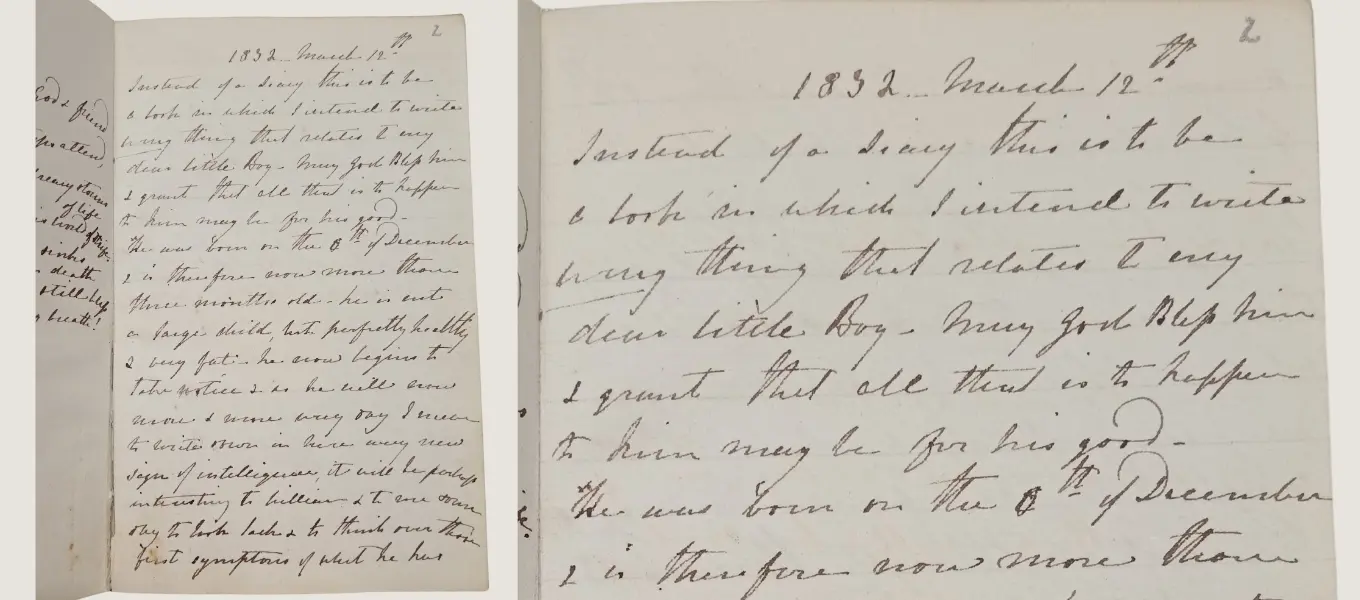 God & friend
attend,
dreary storms
of life
world of strife
sinks
death
still keep
breath!
2
1832 March 12th
Instead of a Diary this is to be
a book in which I intend to write
every thing that relates to my
dear little Boy - May God Bless him
& grant that all that is to happen
to him may be for his good -
He was born on the 8th of December
& is therefore now more than
three months old - he is not
a large child, but perfectly healthy
& very fat - he now begins to
take notice & as he will now
more & more every day I mean
to write down in here every new
sign of intelligence, it will be perhaps
interesting to William & to me some
day to look back & to think over those
first symptoms of what he has
2
1832 March 12th
Instead of a Diary this is to be
a book in which I intend to write
every thing that relates to my
dear little Boy - May God Bless him
& grant that all that is to happen
to him may be for his good -
He was born on the 8th of December
& is therefore now more than